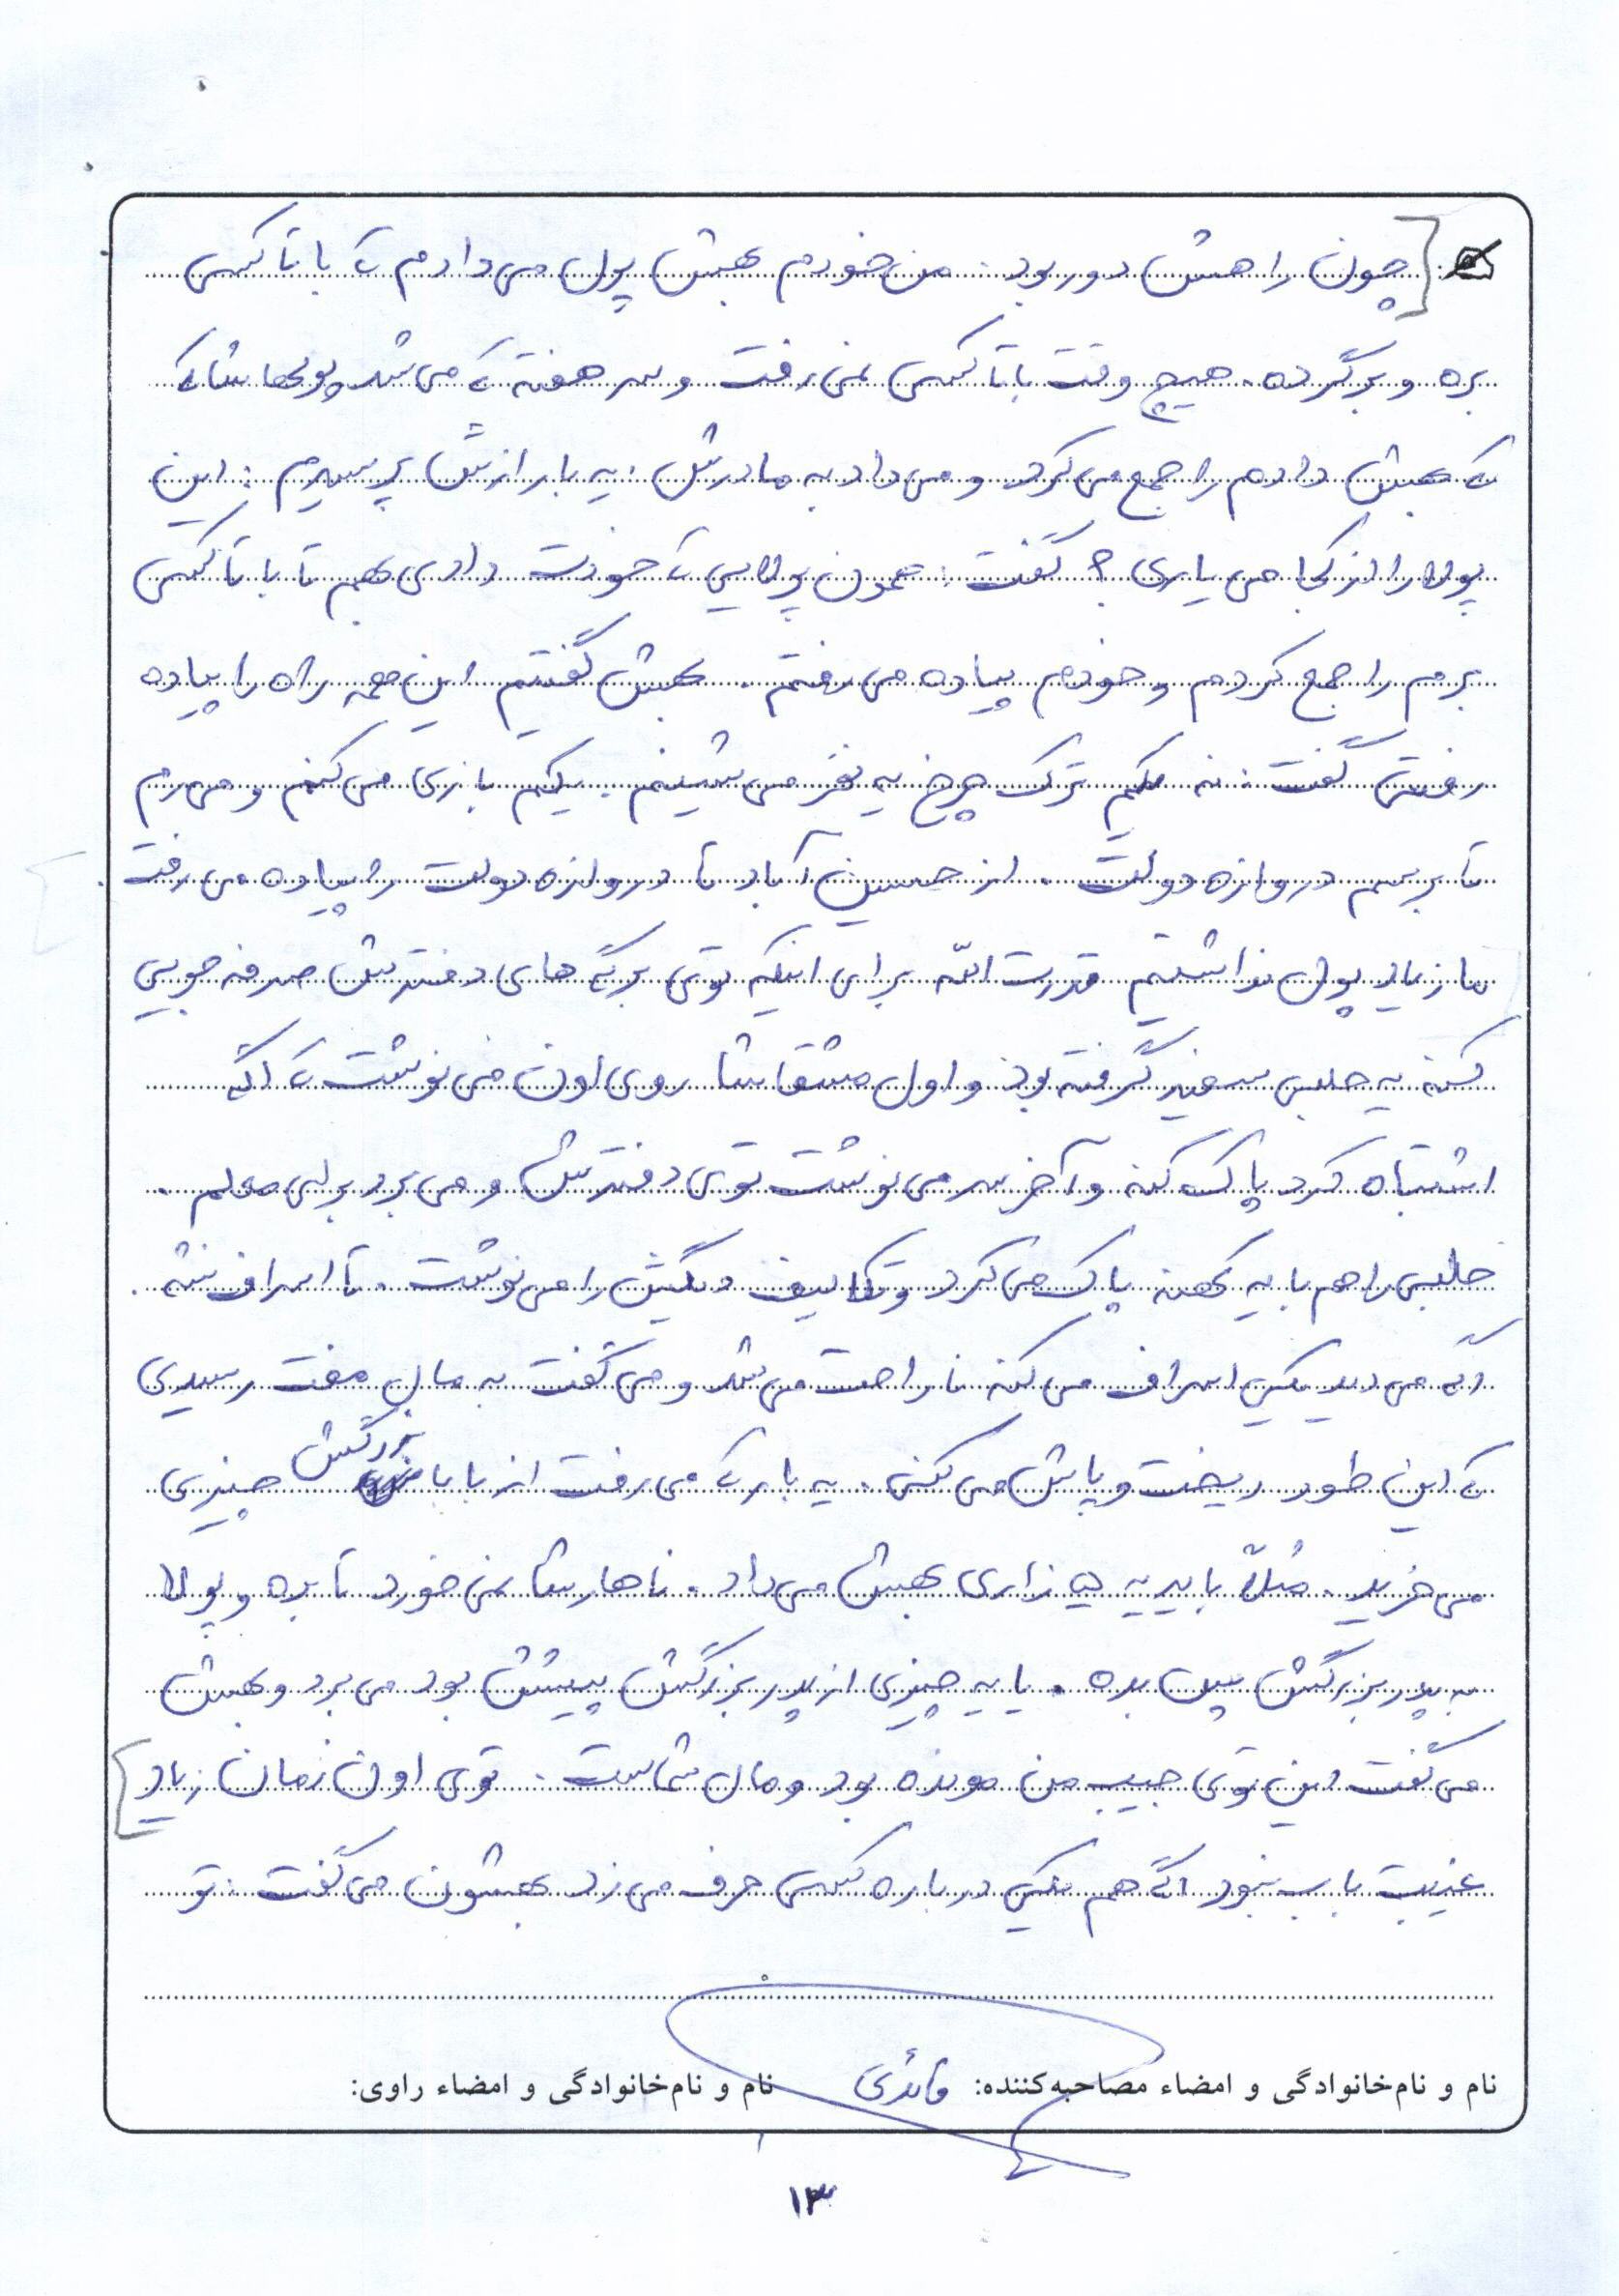 چون راهش دور بود. من خودم بهش پول می‌دادم که با تاکسی
بره و برگرده. هیچ وقت با تاکسی نمی‌رفت و سر هفته که می‌شد پولها شا که
که بهش دادم را جمع می‌کرد و می‌داد به مادرش. یه بار ازش پرسیدم: این
پولا را از کجا می‌یاری؟ گفت: همون پولایی که خودت دادی بهم تا با تاکسی
برم را جمع کردم و خودم پیاده می‌رفتم. بهش گفتم این همه راه را پیاده
رفتی گفت: نه یکم ترک چرخ یه نفر می‌شینم. یکم بازی می‌کنم و می‌رم
تا برسم دروازه دولت. از حسین آباد تا دروازه دولت را پیاده می‌رفت
ما زیاد پول نداشتیم قدرت الله برای اینکه توی برگه‌های دفترش صرفه جویی
کنه یه حلبی سفید گرفته بود و اول مشقاشا روی اون می‌نوشت که اگه
اشتباه کرد پاک کنه و آخر سر می‌نوشت توی دفترش و می‌برد برای معلم.
حلبی را هم با یه کهنه پاک می‌کرد و تکالیف دیگش را می‌نوشت. تا اسراف نشه.
اگه می‌دید یکی اسراف می‌کنه ناراحت می‌شد و می‌گفت به مال مفت رسیدی
که این طور ریخت و پاش می‌کنی. یه بار که می‌رفت از بابا بزرگش چیزی
می‌خرید. مثلاً باید یه ده زاری بهش می‌داد. ناهارشا نمی‌خورد تا بره و پولا
به پدربزرگش پس بده. یا یه چیزی از پدر بزرگش پیشش بود می‌برد و بهش
می‌گفت این توی جیب من مونده بود و مال شماست. توی اون زمان زیاد
غیبت باب نبود اگه هم یکی درباره کسی حرف می‌زد بهشون می‌گفت: تو
نام و نام‌خانوادگی و امضاء مصاحبه‌کننده: قائدی نام و نام‌خانوادگی و امضاء راوی:
۱۳